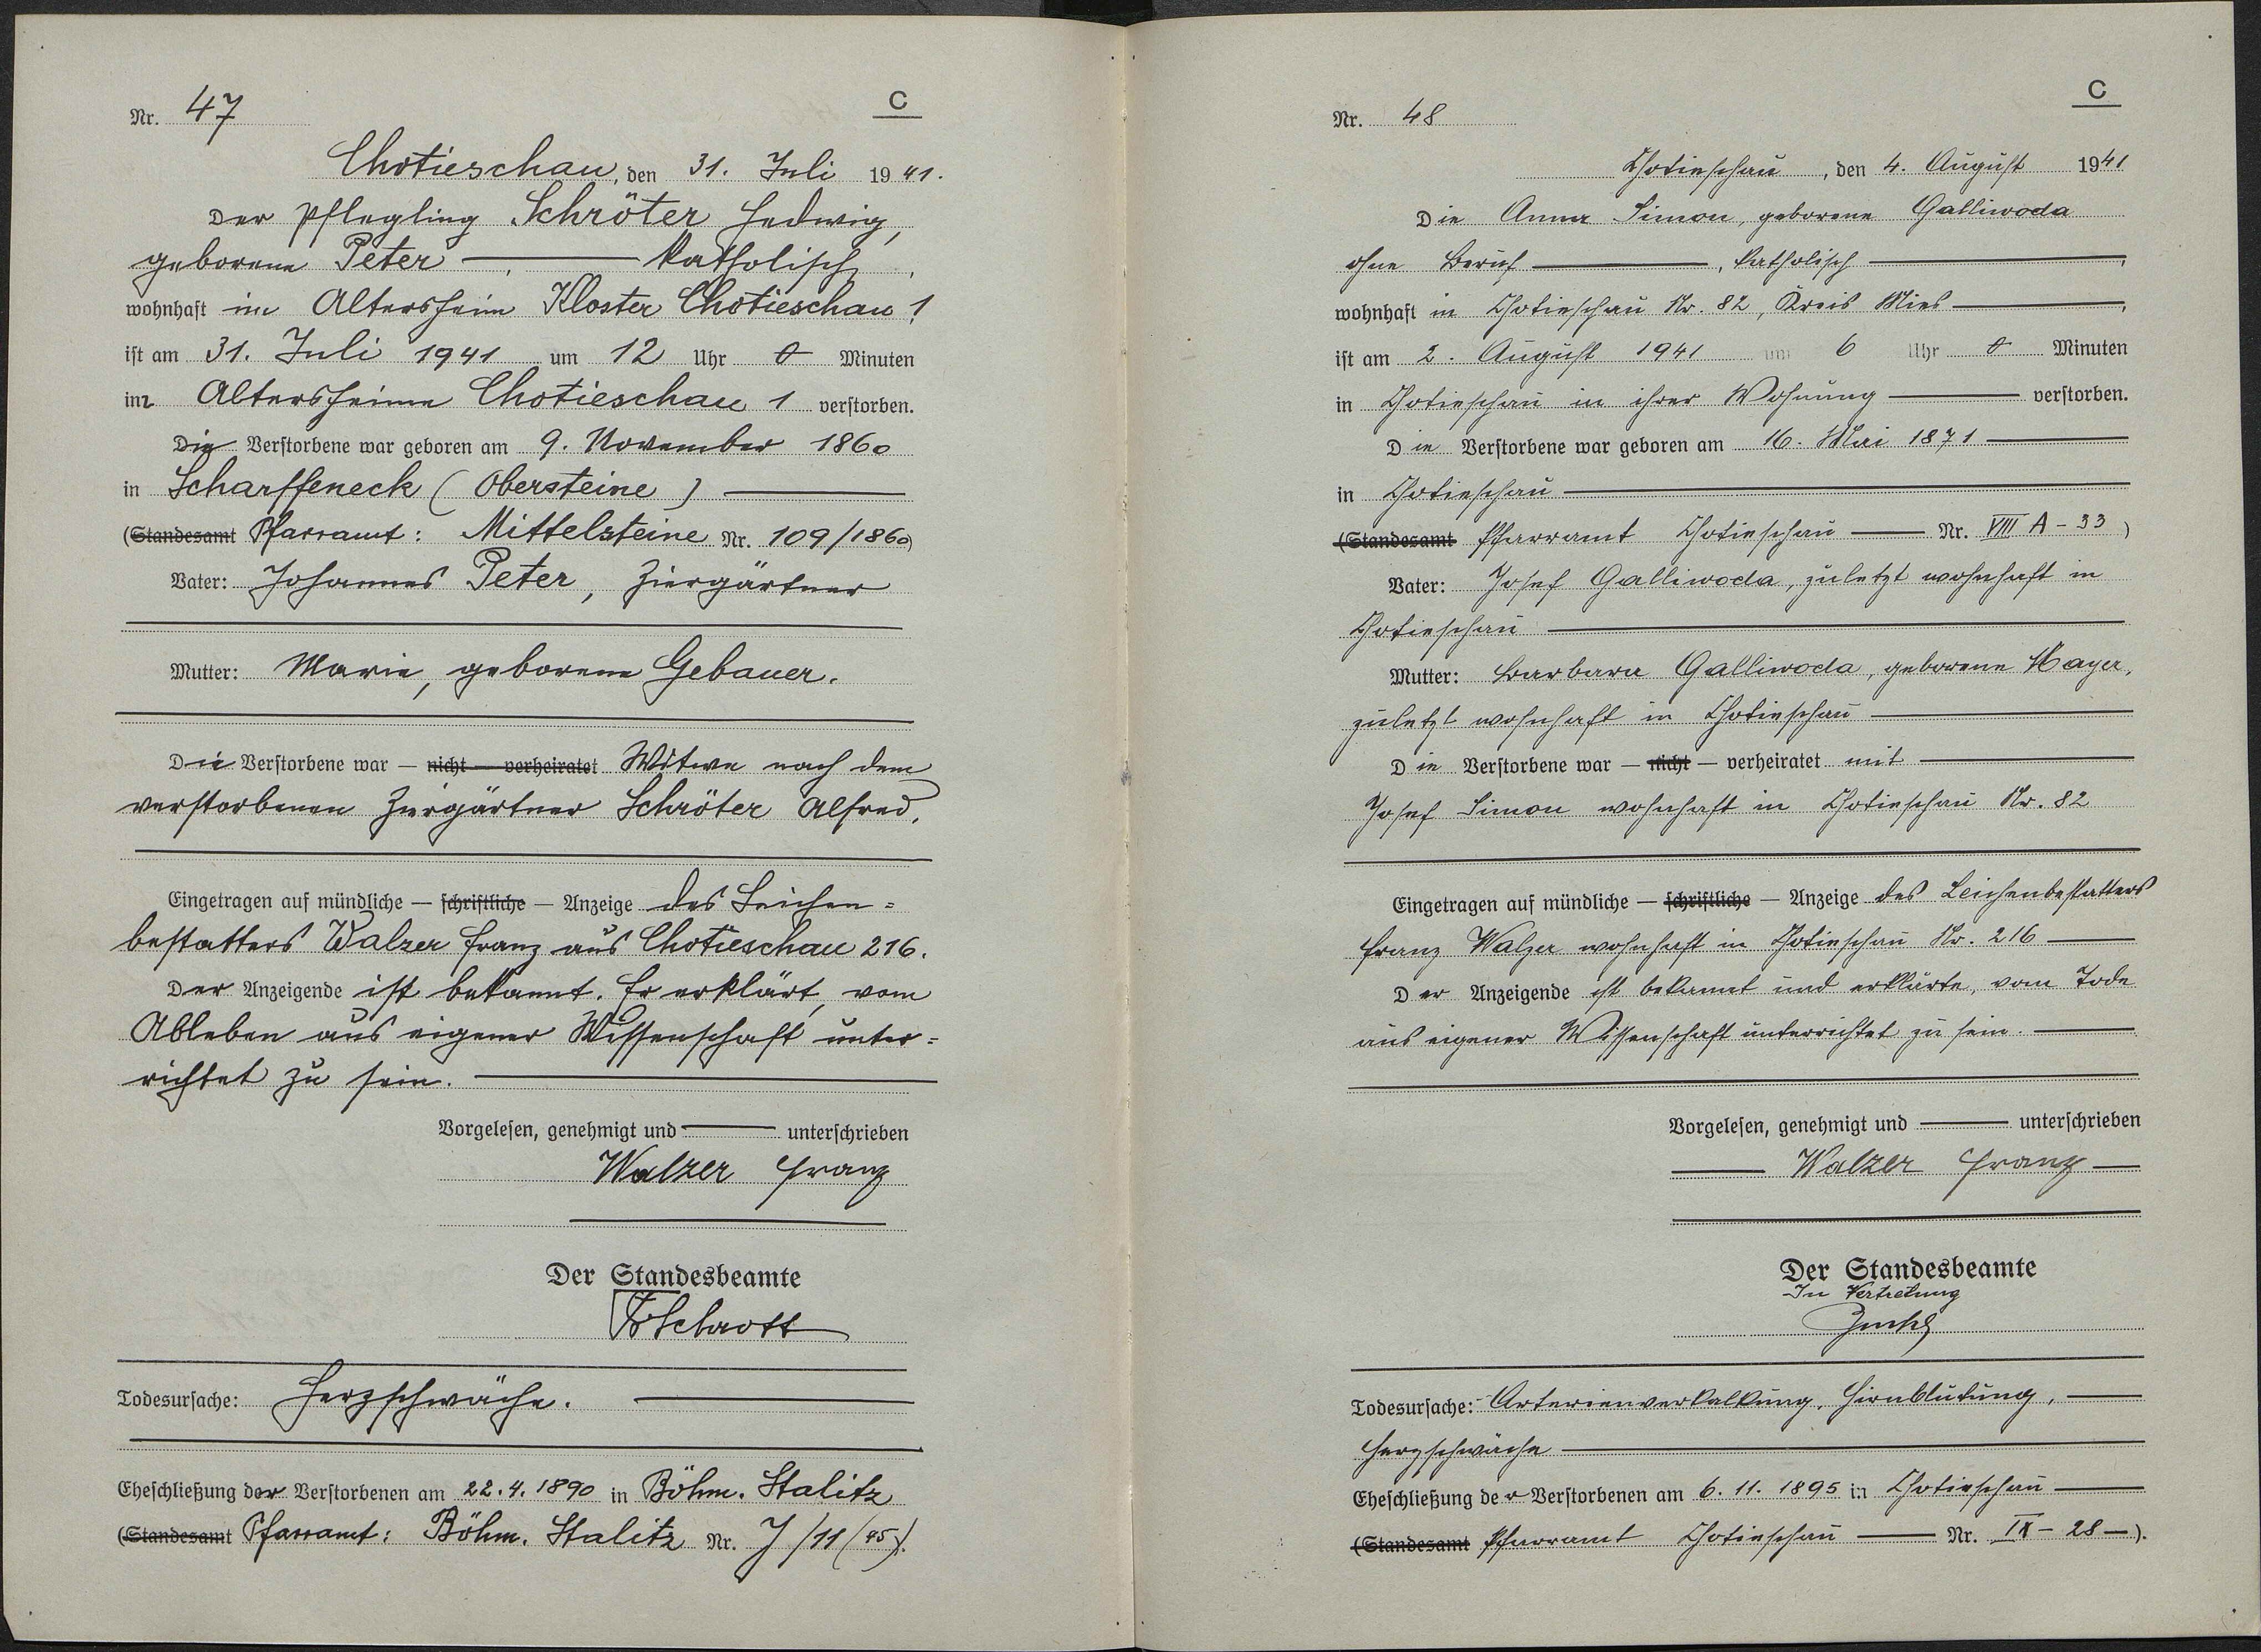 Nr. 47
C
Chotieschau, den 31. Juli 1941.
Der Pflegling Schröter Hedwig,
geborene Peter —, — katholisch,
wohnhaft im Altersheim Kloster Chotieschau 1,
ist am 31. Juli 1941 um 12 Uhr 0 Minuten
im Altersheime Chotieschau 1 verstorben.
Die Verstorbene war geboren am 9. November 1860
in Scharffeneck (Obersteine) —
(Standesamt Pfarramt: Mittelsteine Nr. 109/1860)
Vater: Johannes Peter, Ziergärtner
Mutter: Marie, geborene Gebauer.
Die Verstorbene war — nicht — verheiratet Witwe nach dem
verstorbenen Ziergärtner Schröter Alfred.
Eingetragen auf mündliche — schriftliche — Anzeige des Leichen=
bestatters Walzer Franz aus Chotieschau 216.
Der Anzeigende ist bekannt. Er erklärt, vom
Ableben aus eigener Wissenschaft unter=
richtet zu sein. —
Vorgelesen, genehmigt und — unterschrieben
Walzer Franz
Der Standesbeamte
Schrott
Todesursache: Herzschwäche. —
Eheschließung der Verstorbenen am 22.4.1890 in Böhm. Stalitz
(Standesamt Pfarramt: Böhm. Stalitz Nr. J/11 (45).
Nr. 48
C
Chotieschau, den 4. August 1941
Die Anna Simon, geborene Galliwoda
ohne Beruf —, katholisch —,
wohnhaft in Chotieschau Nr. 82, Kreis Mies —,
ist am 2. August 1941 um 6 Uhr 0 Minuten
in Chotieschau in ihrer Wohnung — verstorben.
Die Verstorbene war geboren am 16. Mai 1871 —
in Chotieschau —
(Standesamt Pfarramt Chotieschau — Nr. VIII A - 33)
Vater: Josef Galliwoda, zuletzt wohnhaft in
Chotieschau —
Mutter: Barbara Galliwoda, geborene Mayer,
zuletzt wohnhaft in Chotieschau —
Die Verstorbene war — nicht — verheiratet mit —
Josef Simon wohnhaft in Chotieschau Nr. 82
Eingetragen auf mündliche — schriftliche — Anzeige des Leichenbestatters
Franz Walzer wohnhaft in Chotieschau Nr. 216 —
Der Anzeigende ist bekannt und erklärte, vom Tode
aus eigener Wissenschaft unterrichtet zu sein. —
Vorgelesen, genehmigt und — unterschrieben
— Walzer Franz —
Der Standesbeamte
In Vertretung
Todesursache: Arterienverkalkung, Hirnblutung, —
Herzschwäche —
Eheschließung der Verstorbenen am 6. 11. 1895 in Chotieschau —
(Standesamt Pfarramt Chotieschau — Nr. IX - 28 —).